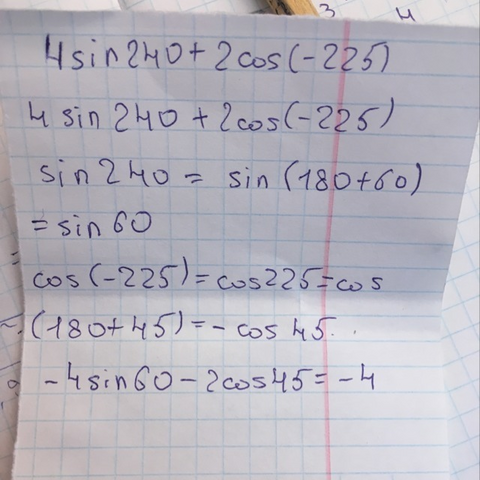 3 4
4sin240+2cos(-225)
4 sin 240 + 2cos(-225)
sin 240 = sin (180+60)
= sin 60
cos (-225) = cos225 = cos
(180+45) = - cos 45.
-4sin60 - 2cos45 = -4